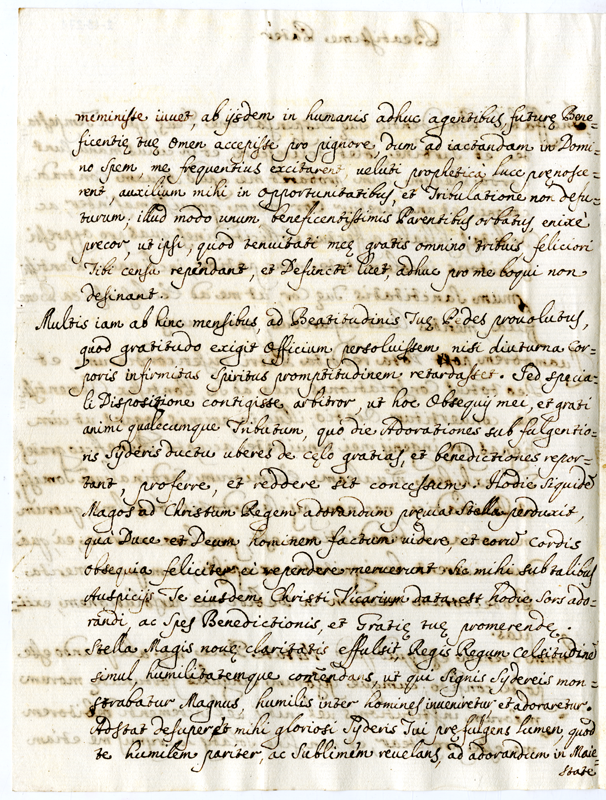 meministe iuvet, ab ijsdem in humanis adhuc agentibus futurę Bene-
ficentię tuę omen accepisse pro pignore, dum ad iactandam in Domi-
no Spem me frequentius excitarent, veluti prophetica luce pręnosce-
rent, auxilium mihi in opportunitatibus, et Tribulatione non defu-
turum; illud modo unum beneficentissimis Parentibus orbatus, enixè
precor, ut ipsi, quod tenuitati meę gratis omnino tribuis feliciori
Tibi censu rependant, et Defuncti licet, adhuc pro me loqui non
desinant.
Multis iam ab hinc mensibus, ad Beatitudinis Tuę Pedes provolutus,
quod gratitudo exigit Officium persoluissem nisi diuturna Cor-
poris infirmitas Spiritus promptitudinem retardasset. Sed specia-
li Dispositione contigisse arbitror, ut hoc Obsequij mei, et grati
animi qualecumque Tributum, quo die Adorationes sub fulgentio-
ris Syderis ductu uberes de cęlo gratias, et benedictiones repor-
tant, proferre, et reddere sit concessum. Hodie Siquidẽ
Magos ad Christum Regem adorandum pręvia Stella perduxit,
qua Duce et Deum hominem factum videre, et eorũ Cordis
obsequia feliciter ei rependere meruerunt. Sic mihi sub talibus
Auspicijs Te eiusdem Christi Vicarium data est hodie Sors ado-
randi, ac Spes Benedictionis, et Gratię tuę promerendę.
Stella Magis novę claritatis effulsit, Regis Regum Celsitudinẽ
simul, humilitatemque com̃endans, ut qui Signis Sydereis mon-
strabatur Magnus humilis inter homines inveniretur et adoraretur.
Adstat desuper et mihi gloriosi Syderis Tui pręfulgens lumen quod
te humilem pariter, ac Sublimem revelans, ad adorandum in Maie-
state